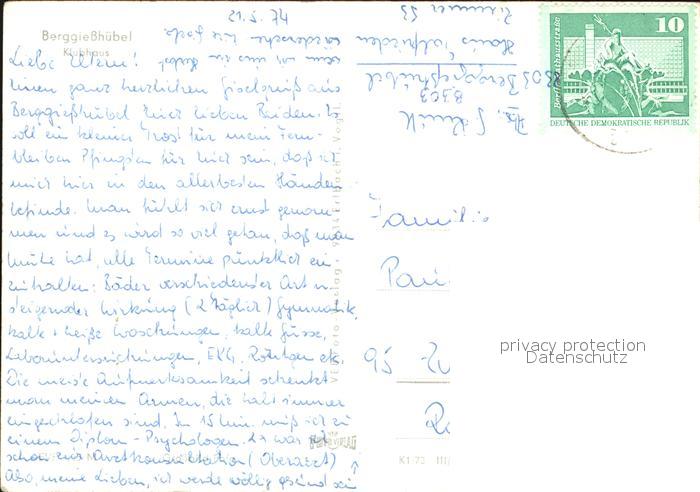 21.5.74
Berggießhübel
Klubhaus
Liebe Eltern!
Einen ganz herzlichen Grüß aus
Berggießhübel Euer lieben Beiden. Es
soll ein kleiner Trost für mein Fern-
bleiben Pfingsten für Euch sein, daß ich
mich hier in den allerbesten Händen
befinde. Man fühlt sich ernst genom-
men und es wird so viel getan, daß man
Mühe hat, alle Termine pünktlich ein-
zuhalten: Bäder verschiedenster Art in
steigender Wirkung (2 x täglich) Gymnastik,
kalte + heiße Waschungen, kalte Güsse,
Laboruntersuchungen, EKG, Röntgen etc.
Die meiste Aufmerksamkeit schenkt
man meinen Armen, die halt immer
eingeschlafen sind. In 15 Min. muß ich zu
einem Diplom-Psychologen. Es war
schon zur Arztkonsultation (Oberarzt)
Also, meine Lieben, ich werde völlig gesund sein
wir
8303 Berggießhübel
Zimmer 53
Familie
Pau
95 Zw
K1/73
10
DEUTSCHE DEMOKRATISCHE REPUBLIK
privacy protection
Datenschutz